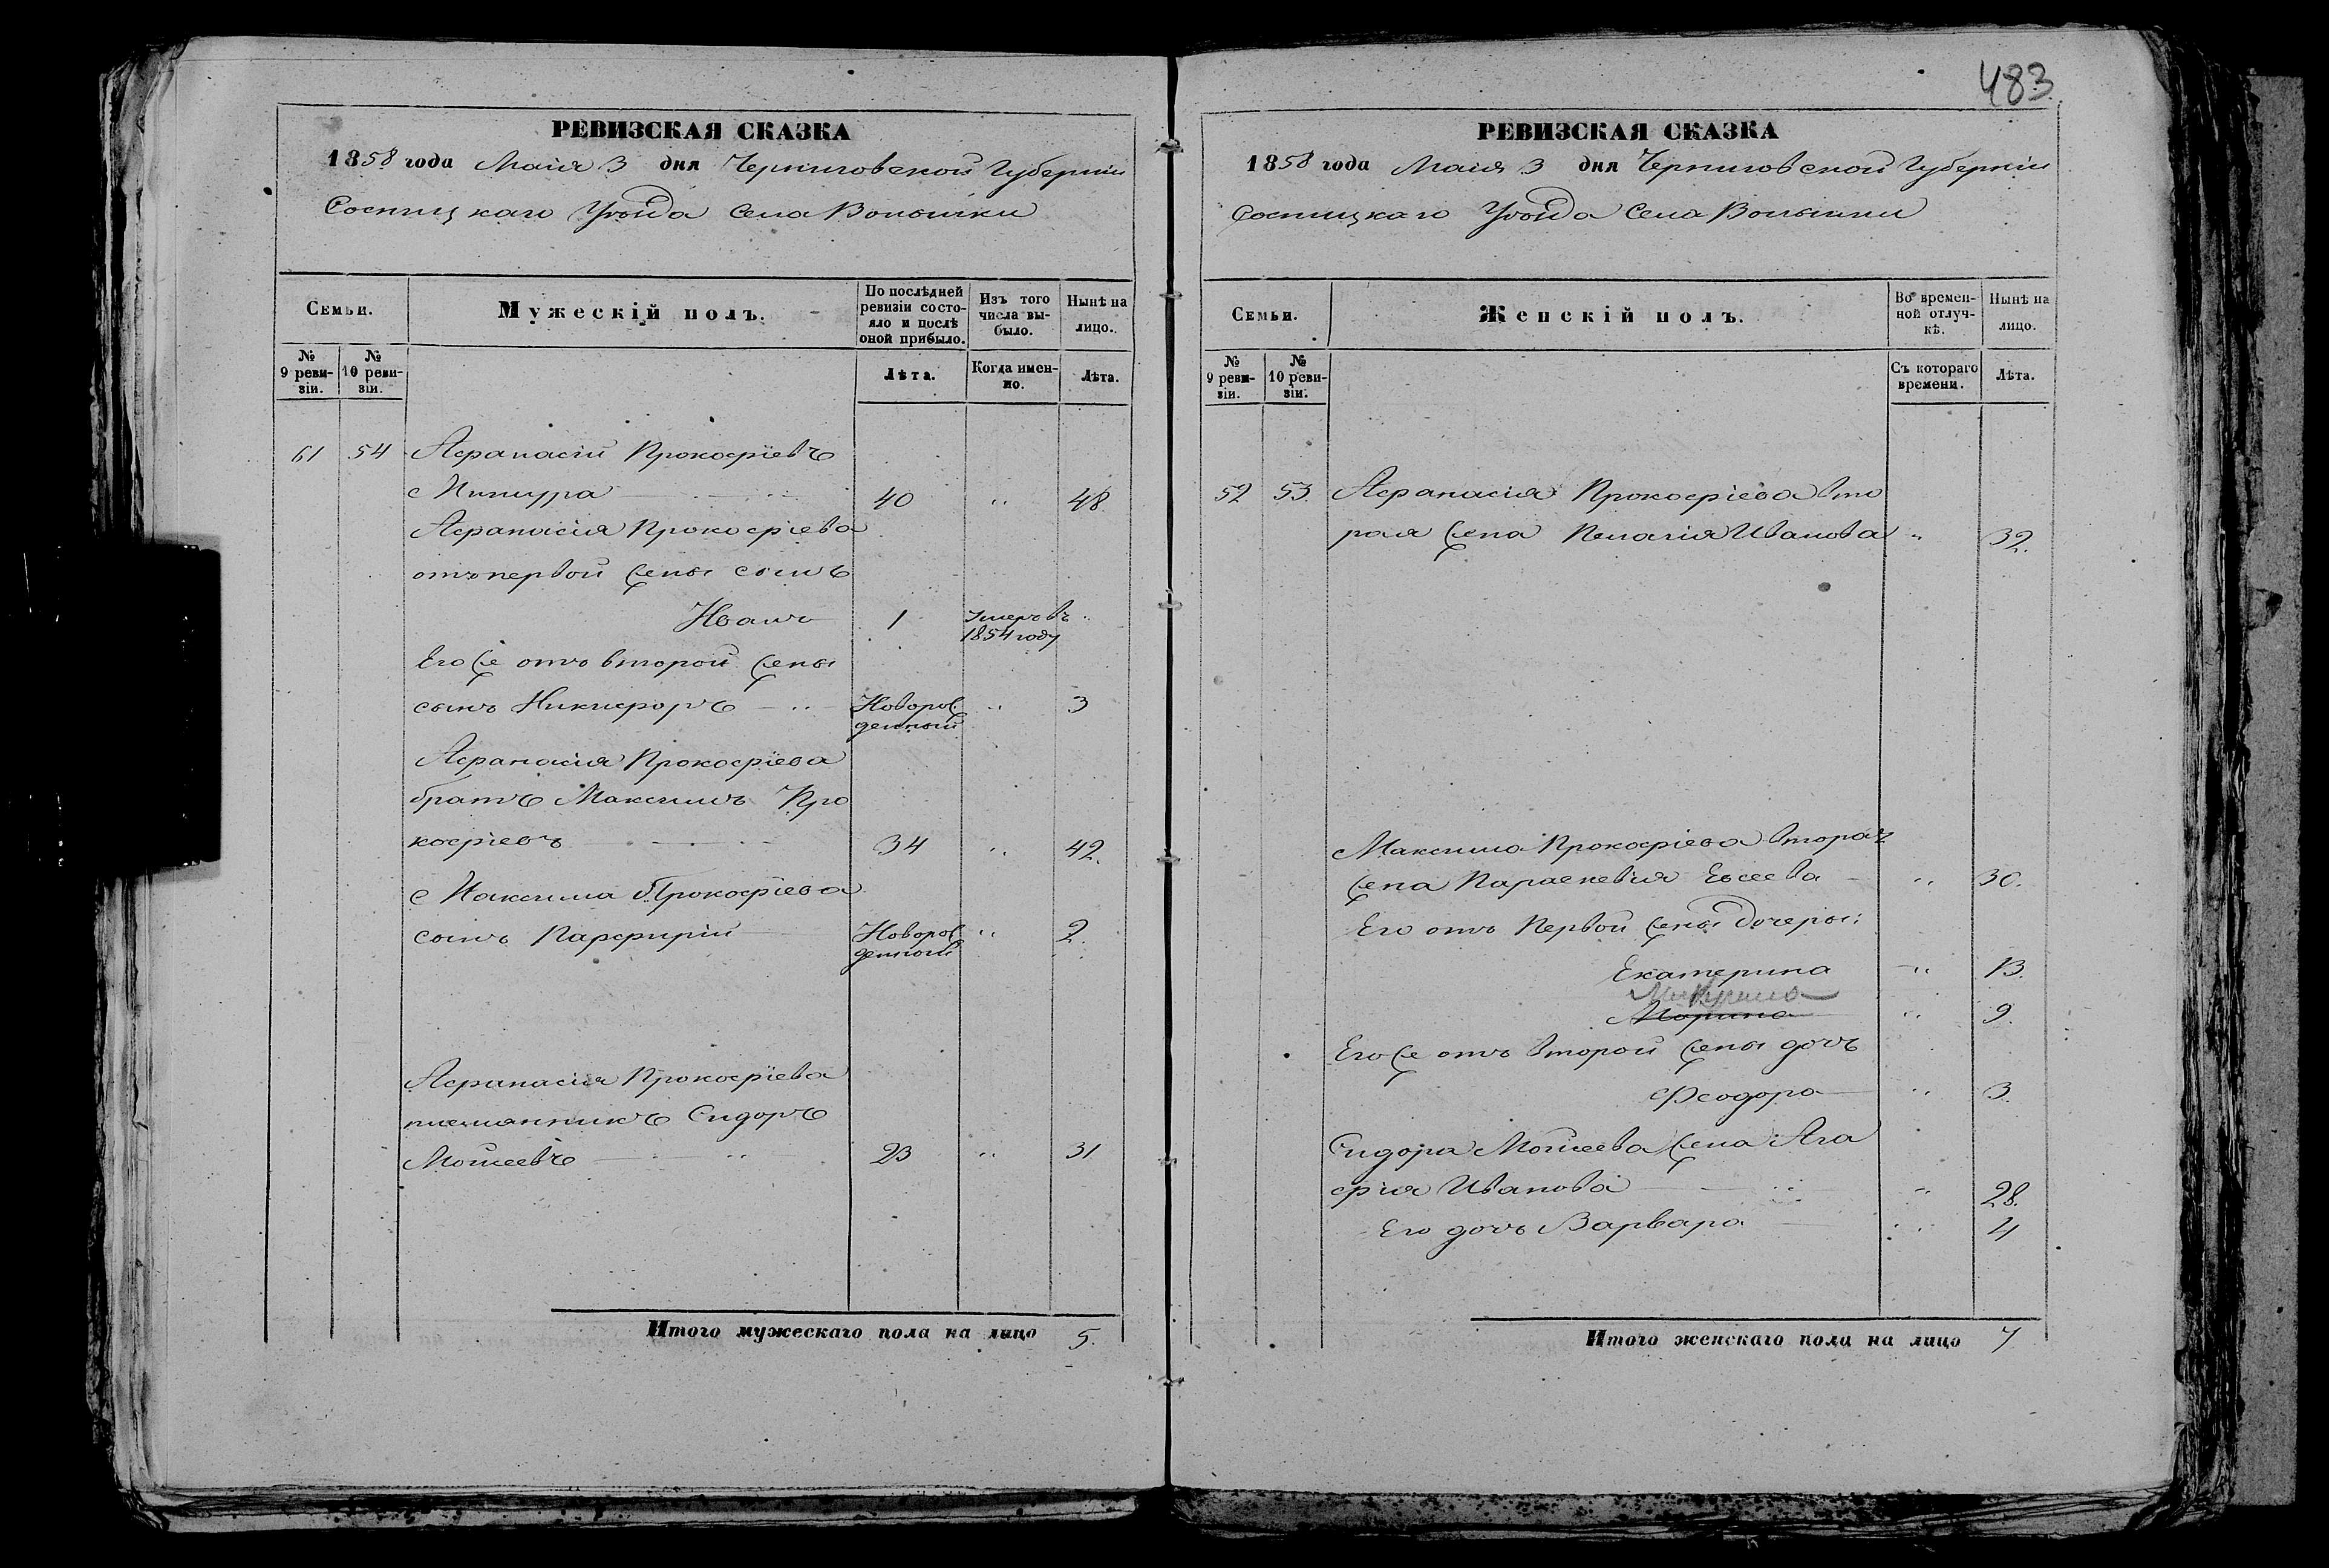 483
РЕВИЗСКАЯ СКАЗКА
1858 года Маія 3 дня Черниговской Губерніи
Сосницкаго Уѣзда Села Волынки
Семьи.
Мужескій полъ.
По послѣдней ревизіи состояло и послѣ оной прибыло.
Изъ того числа выбыло.
Нынѣ на лицо.
№ 9 ревизіи.
№ 10 ревизіи.
Лѣта.
Когда именно.
Лѣта.
61 54 Афанасій Прокофіевъ
40 " 48
Афанасія Прокофіева
отъ первой жены сынъ
Иванъ 1 Умеръ въ "
1854 году
Его же отъ второй жены
сынъ Никифоръ Новорож " 3
денный
Афанасія Прокофіева
братъ Максимъ Про
кофіевъ 34 " 42.
Максима Прокофіева
сынъ Парфирій Новорож " 2.
денный
Афанасія Прокофіева
племянникъ Сидоръ
Мойсеевъ 23 " 31
Итого мужескаго пола на лицо 5.
РЕВИЗСКАЯ СКАЗКА
1858 года Маія 3 дня Черниговской Губерніи
Сосницкаго Уѣзда Села Волынки
Семьи.
Женскій полъ.
Во временной отлучкѣ.
Нынѣ на лицо.
№ 9 ревизіи.
№ 10 ревизіи.
Съ котораго времени.
Лѣта.
52 53. Афанасія Прокофіева вто
рая жена Пелагія Иванова " 32.
Максима Прокофіева вторая
жена Параскевія Евсеева " 30.
Его отъ первой жены дочери:
Екатерина " 13.
Марина " 9.
Его же отъ второй жены дочь
Феодора " 3.
Сидора Мойсеева жена Ага
фія Иванова " 28.
Его дочь Варвара " 4
Итого женскаго пола на лицо 7